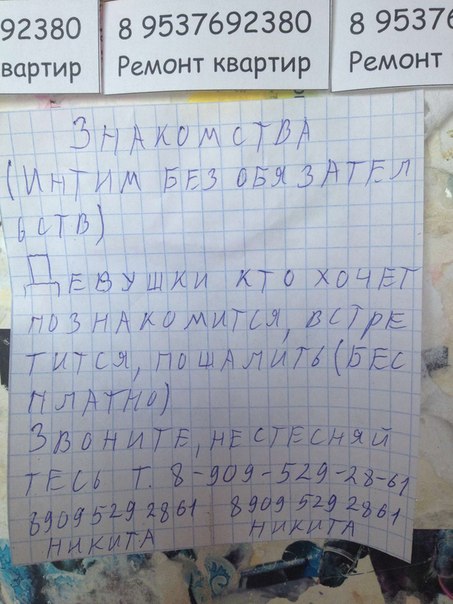 92380 8 9537692380 8 9537
вартир Ремонт квартир Ремонт
Знакомства
(интим без обязател
ьств)
Девушки кто хочет
познакомится, встре
тится, пошалить (бес
платно)
Звоните, нестесняй
тесь т. 8-909-529-28-61
8909 529 2861 8909 529 2861
Никита Никита